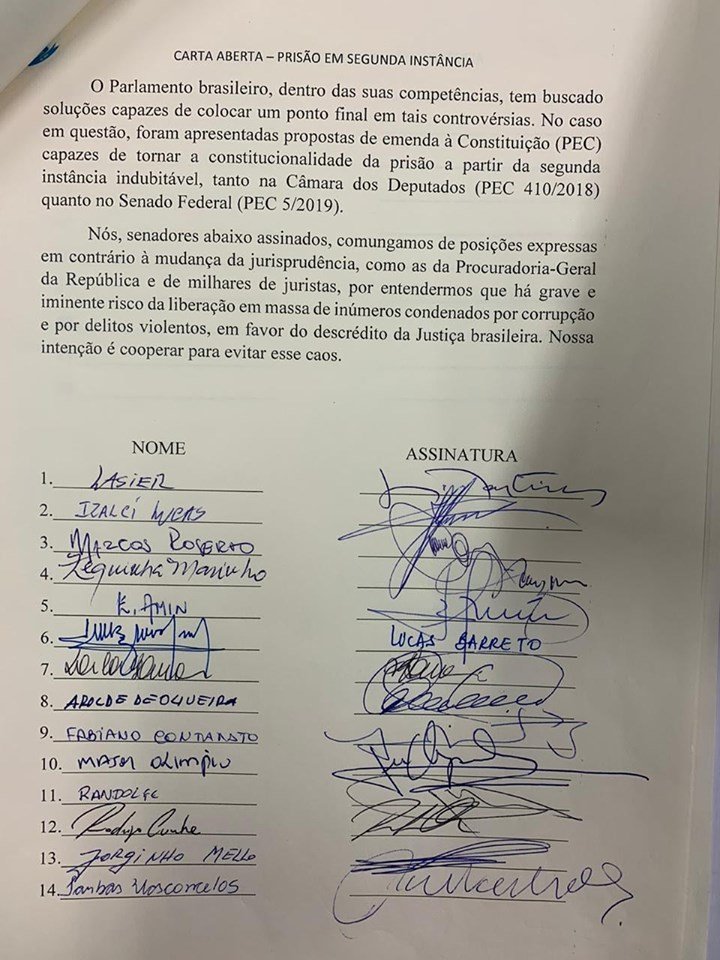 CARTA ABERTA – PRISÃO EM SEGUNDA INSTÂNCIA
O Parlamento brasileiro, dentro das suas competências, tem buscado
soluções capazes de colocar um ponto final em tais controvérsias. No caso
em questão, foram apresentadas propostas de emenda à Constituição (PEC)
capazes de tornar a constitucionalidade da prisão a partir da segunda
instância indubitável, tanto na Câmara dos Deputados (PEC 410/2018)
quanto no Senado Federal (PEC 5/2019).
Nós, senadores abaixo assinados, comungamos de posições expressas
em contrário à mudança da jurisprudência, como as da Procuradoria-Geral
da República e de milhares de juristas, por entendermos que há grave e
iminente risco da liberação em massa de inúmeros condenados por corrupção
e por delitos violentos, em favor do descrédito da Justiça brasileira. Nossa
intenção é cooperar para evitar esse caos.
NOME ASSINATURA
1. LASIER
2. IZALCI LUCAS
3. MARCOS ROGERIO
4. Zequinha Marinho
5. E. AMIN
6. LUCAS BARRETO
7.
8. AROLDE DE OLIVEIRA
9. FABIANO CONTARATO
10. MAJOR OLIMPIO
11. RANDOLFE
12. Rodrigo Cunha
13. JORGINHO MELLO
14. Jarbas Vasconcelos